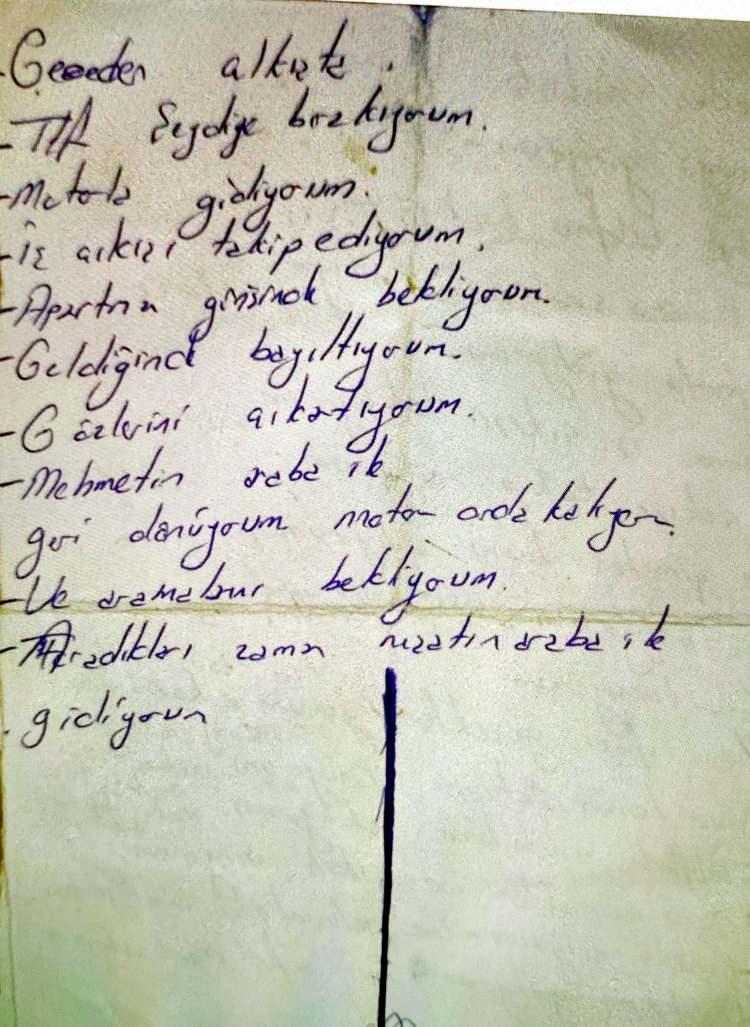 -Geceden alkıata.
-Tlf Seydiye bırakıyorum.
-Motorla gidiyorum.
-İş çıkışı takip ediyorum.
-Apartman girişinde bekliyorum.
-Geldiğinde bayıltıyorum.
-Gözlerini çıkartıyorum.
-Mehmetin araba ile
geri dönüyorum motor orda kalıyor.
-Ve aramaları bekliyorum.
-Aradıkları zaman nizatın araba ile
gidiyorum